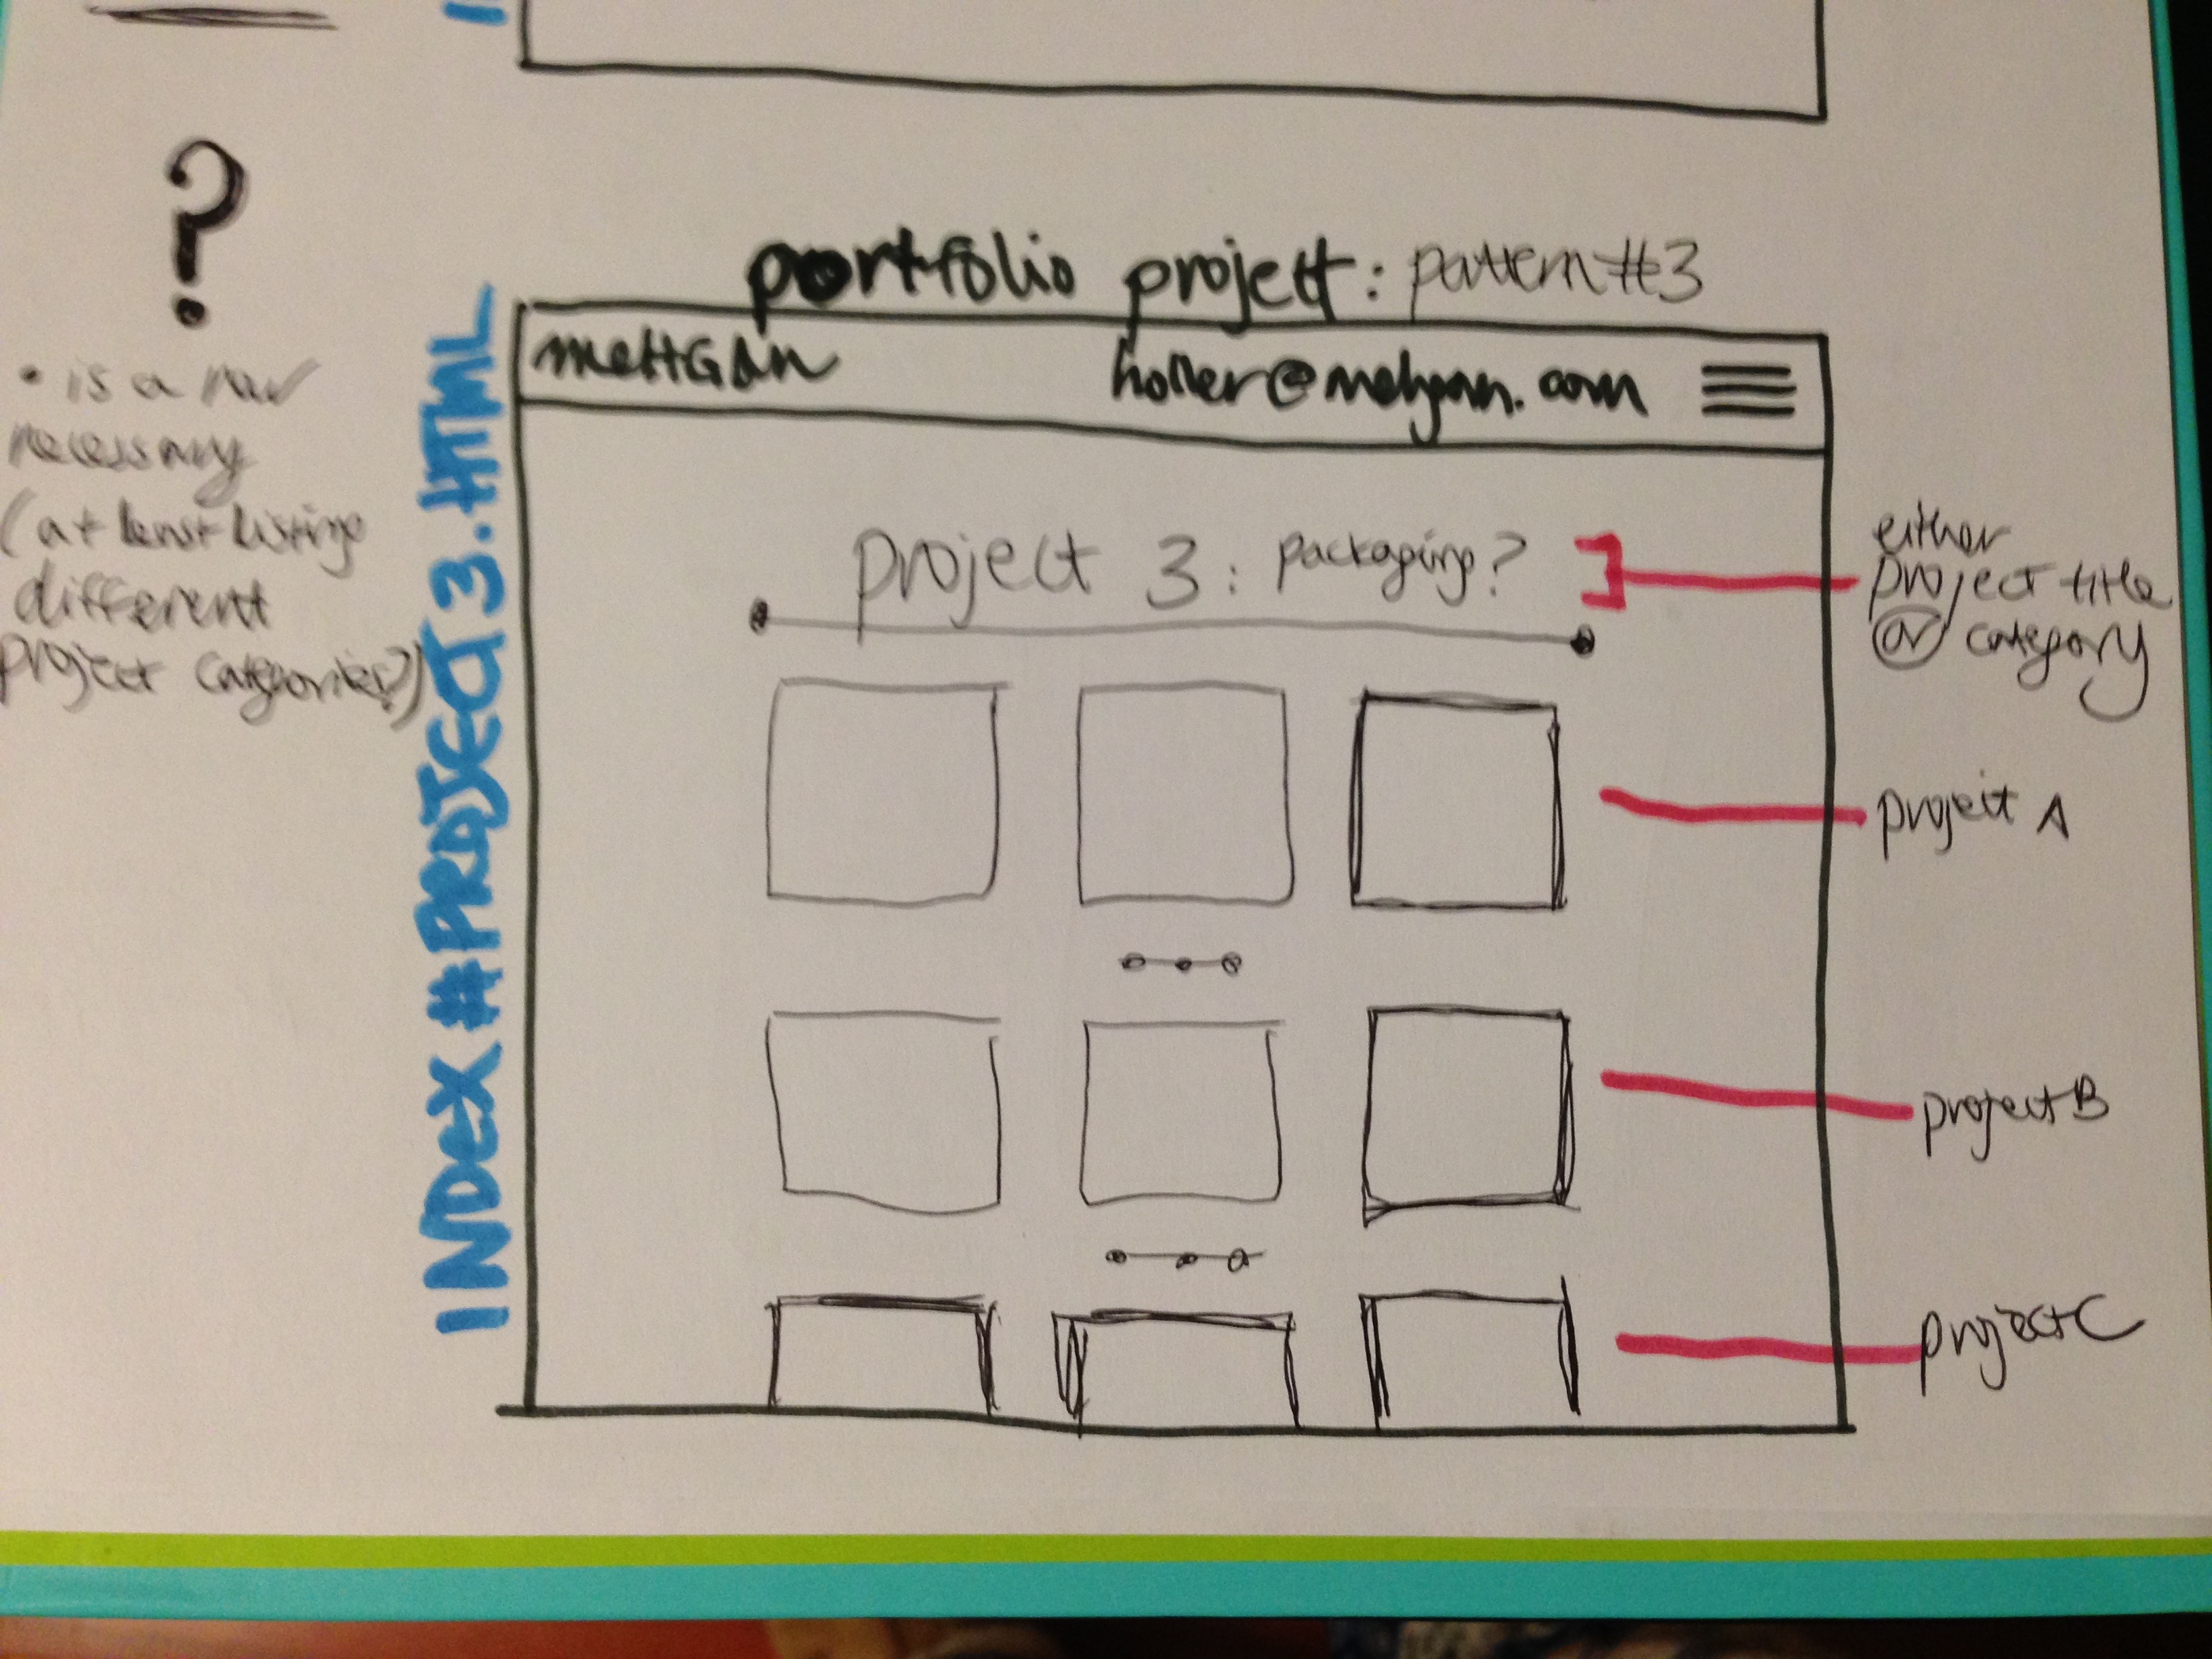 ?
• is a nav
necessary
(at least listing
different
project categories?)
INDEX#PROJECT3.HTML
portfolio project: pattern #3
holler@melgann.com
project 3: packaging?
either
project title
or category
project A
project B
project C